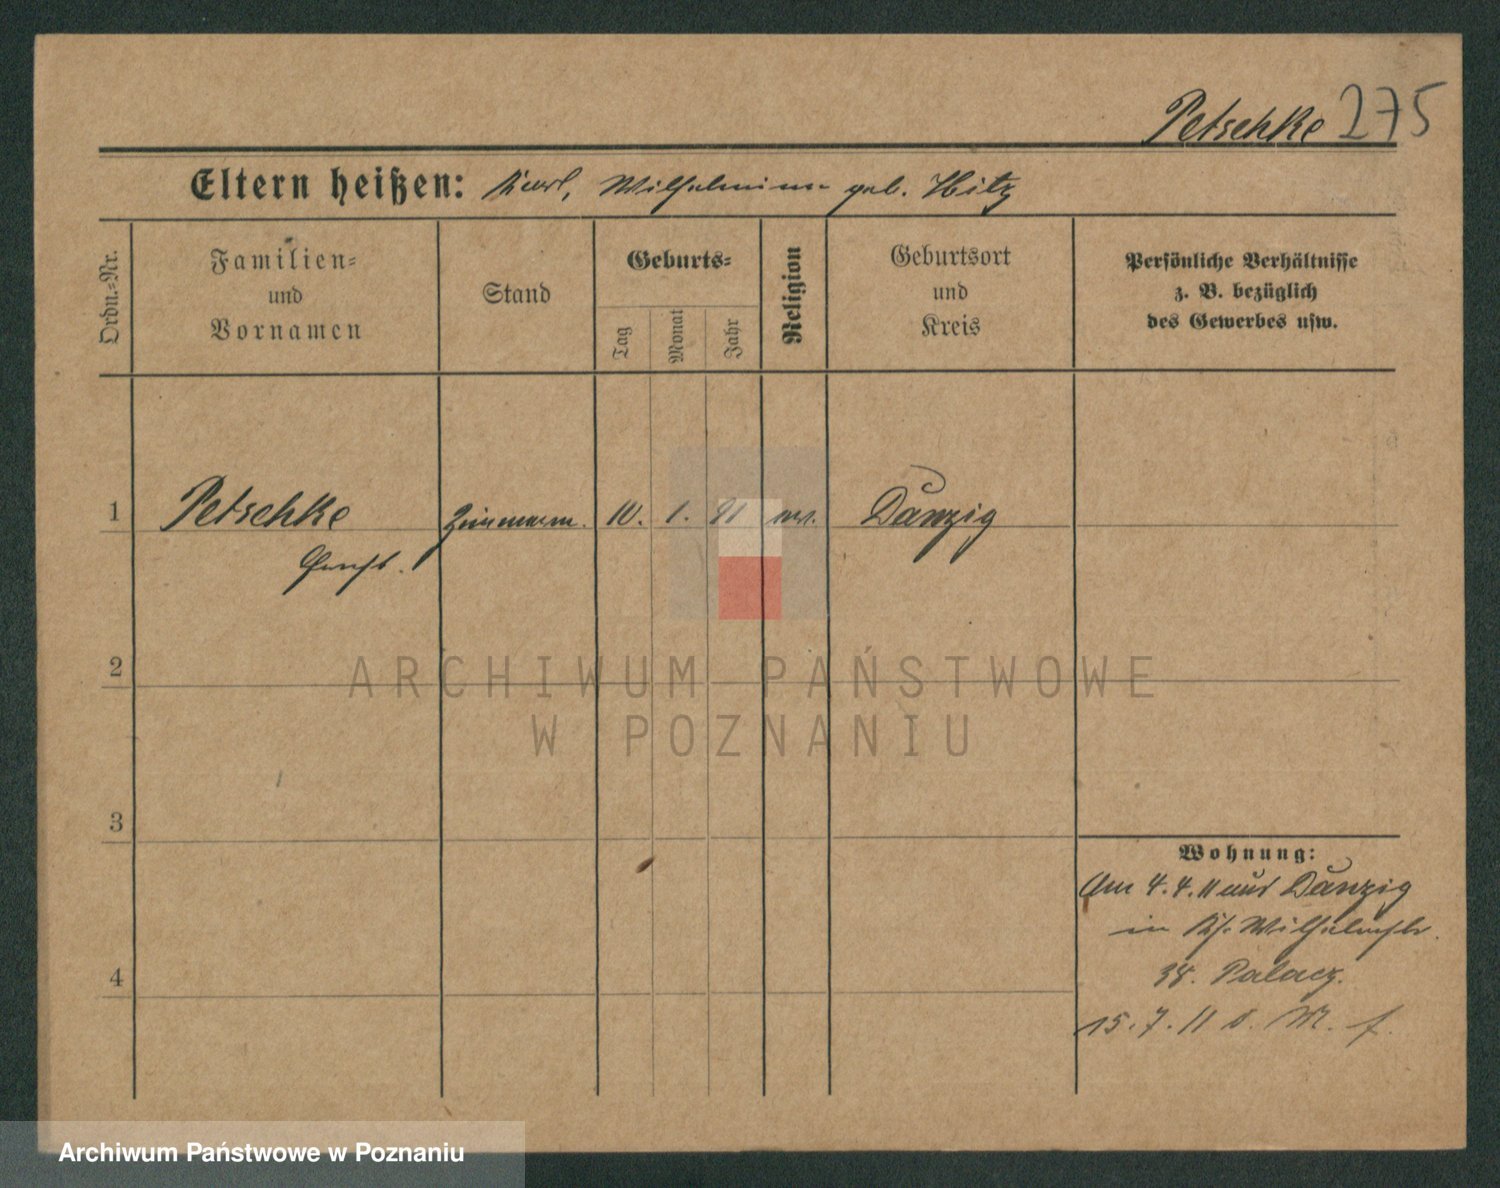 Petschke 275
Eltern heißen: Karl, Wilhelmine geb. Hitz
Ordn.-Nr.
Familien-
und
Vornamen
Stand
Geburts-
Tag
Monat
Jahr
Religion
Geburtsort
und
Kreis
Persönliche Verhältnisse
z. B. bezüglich
des Gewerbes usw.
1 Petschke Zimmerm. 10. 1. 91 ev. Danzig
Ernst.
2
3
4
Wohnung:
Am 4.4.11 aus Danzig
in Wilhelmstr.
38. Palacz.
15.7.11
ARCHIWUM PAŃSTWOWE
W POZNANIU
Archiwum Państwowe w Poznaniu